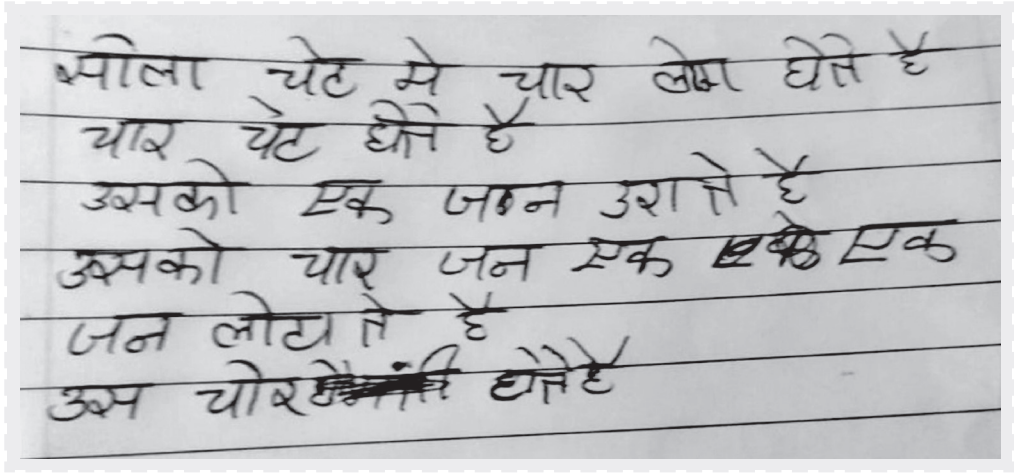 सीला चेट मे चार लोग घेते है
चार चेट घेते है
उसको एक जन उराते है
उसको चार जन एक एक
जन लोटाते है
उस चोर घेतेहै